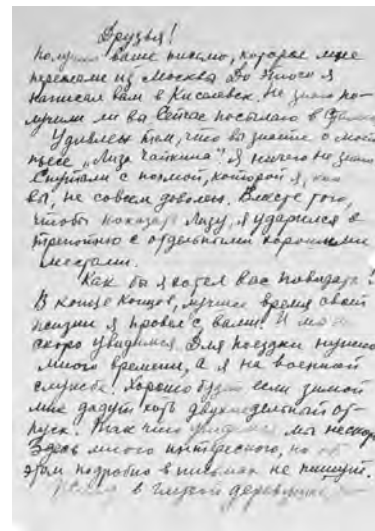 Друзья!
Получил ваше письмо, которое мне
переслали из Москвы. До этого я
написал вам в Киселевск. Не знаю по-
лучили ли вы. Сейчас посылаю в
Удивлен тем, что вы знаете о моей
пьесе „Лиза Чайкина“. Я ничего не знаю.
Спутали с поэмой, которой я, как
вы, не совсем доволен. Вместо того,
чтобы показать Лизу, я ударился в
трепотню с отдельными хорошими
местами.
Как бы я хотел вас повидать!
В конце концов, лучшее время своей
жизни я провел с вами. И мы
скоро увидимся. Для поездки нужно
много времени, а я на военной
службе. Хорошо будет если зимой
мне дадут хоть двухнедельный от-
пуск. Так что мы нескоро
Здесь много интересного, но об
этом подробно в письмах не пишут.
в глухой деревушке